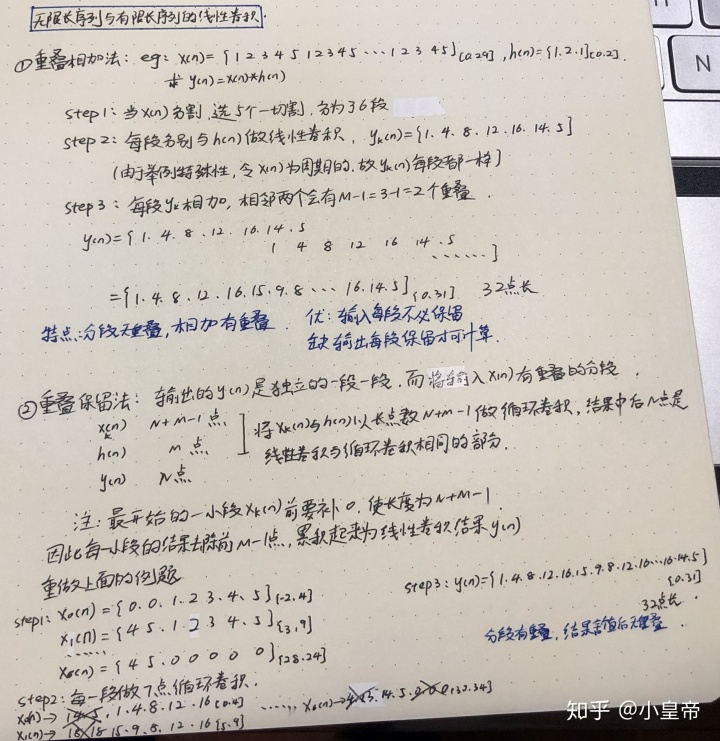 无限长序列与有限长序列的线性卷积.
①重叠相加法: eg: x(n)={1 2 3 4 5 1 2 3 4 5 ··· 1 2 3 4 5}[0.29], h(n)={1.2.1}[0.2].
求 y(n)=x(n)*h(n)
step1: 当x(n)分割, 选5个一切割, 分为36段
step2: 每段分别与h(n)做线性卷积, yk(n)={1. 4. 8. 12. 16. 14. 5}
(由于举例特殊性, 令x(n)为周期的, 故yk(n)每段都一样)
step3: 每段yk相加, 相邻两个会有M-1=3-1=2个重叠.
y(n)={1. 4. 8. 12. 16. 14. 5
1 4 8 12 16 14. 5
······}
={1. 4. 8. 12. 16. 15. 9. 8 ··· 16. 14. 5}[0.31] 32点长
特点:分段无重叠, 相加有重叠. 优: 输入每段不必保留
缺:输出每段保留才可计算.
②重叠保留法: 输出的y(n)是独立的一段一段, 而将输入x(n)有重叠的分段.
xk(n) N+M-1点
h(n) M点
y(n) N点
将xk(n)与h(n)以长点数N+M-1做循环卷积, 结果中后N点是
线性卷积与循环卷积相同的部分.
注: 最开始的一小段xk(n)前要补0, 使长度为N+M-1.
因此每一小段的结果去除前M-1点, 累积起来为线性卷积结果y(n)
重做上面的例题
step1: x0(n)={0. 0. 1. 2 3. 4. 5}[-2.4]
x1(n)={4 5. 1. 2 3 4. 5}[3,9]
x6(n)={4 5. 0 0 0 0 0}[28.24]
step2: 每一段做7点循环卷积.
x0(n)→ 14 5. 1. 4. 8. 12. 16[0.4] ······ x6(n)→ 14. 5. 0 0 0[30.34]
x1(n)→ 15. 9. 8. 12. 16[5.9]
step3: y(n)={1. 4. 8. 12. 16. 15. 9. 8. 12. 16 ··· 16. 14. 5}
[0.31]
32点长.
分段有重叠, 结果舍值后无重叠.
知乎 @小皇帝
N